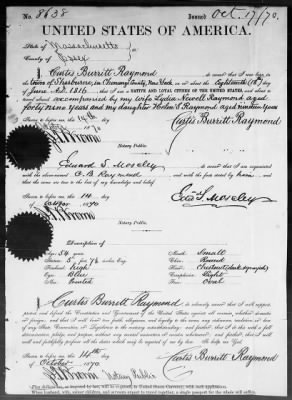 No. 8638 Issued Oct. 17/70.
UNITED STATES OF AMERICA.
State of Massachusetts
County of Essex
I, Curtis Burritt Raymond, do swear that I was born in the
town of Sherburne, in Chenango County, New York, on or about the Eighteenth (18th) day
of June A.D. 1816, that I am a NATIVE AND LOYAL CITIZEN OF THE UNITED STATES, and about to travel
abroad accompanied by my wife Lydia Newell Raymond aged
years and my daughter Raymond aged nineteen years
Sworn to before me this 14th day Curtis Burritt Raymond
of 1870
Notary Public.
I, Edward S. Moseley, do swear that I am acquainted
with the above-named C. B. Raymond and with the facts stated by him, and
that the same are true to the best of my knowledge and belief.
Sworn to before me this 14 day Edw. S. Moseley
of October 1870
Notary Public.
Description of
Age: 54 years Mouth: Small
Stature: 5 feet 7½ inches, Eng. Chin: Round
Forehead: high Hair: Chestnut
Eyes: Blue Complexion: Light
Nose: Face: Oval
I, Curtis Burritt Raymond, do solemnly swear that I will support,
protect, and defend the Constitution and Government of the United States against all enemies, whether domestic
or foreign; and that I will bear true faith, allegiance, and loyalty to the same, any ordinance, resolution, or law
of any State Convention or Legislature to the contrary notwithstanding; and further, that I do this with a full
determination, pledge, and purpose, without any mental reservation or evasion whatsoever; and further, that I will
well and faithfully perform all the duties which may be required of me by law. So help me God.
Sworn to before me this 14th day Curtis Burritt Raymond
of October 1870
Notary Public